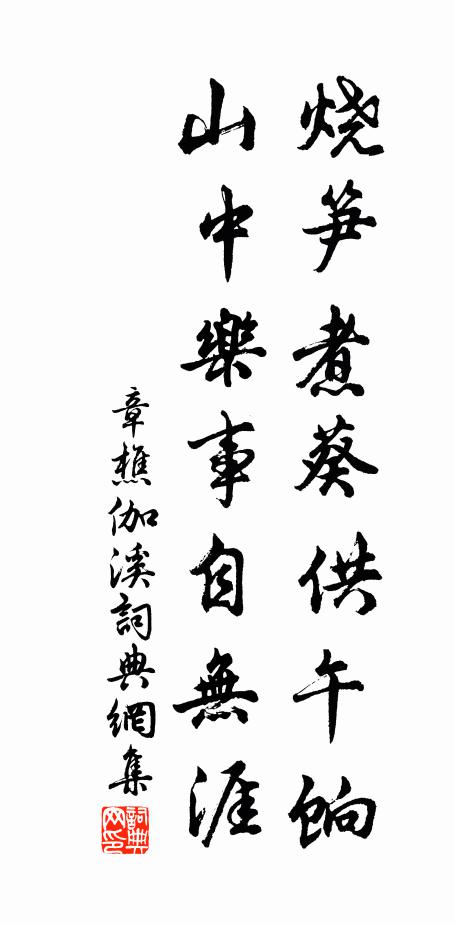 烧笋煮葵供午餉
山中樂事自無涯
章樵伽溪詞典網集
詞典网印